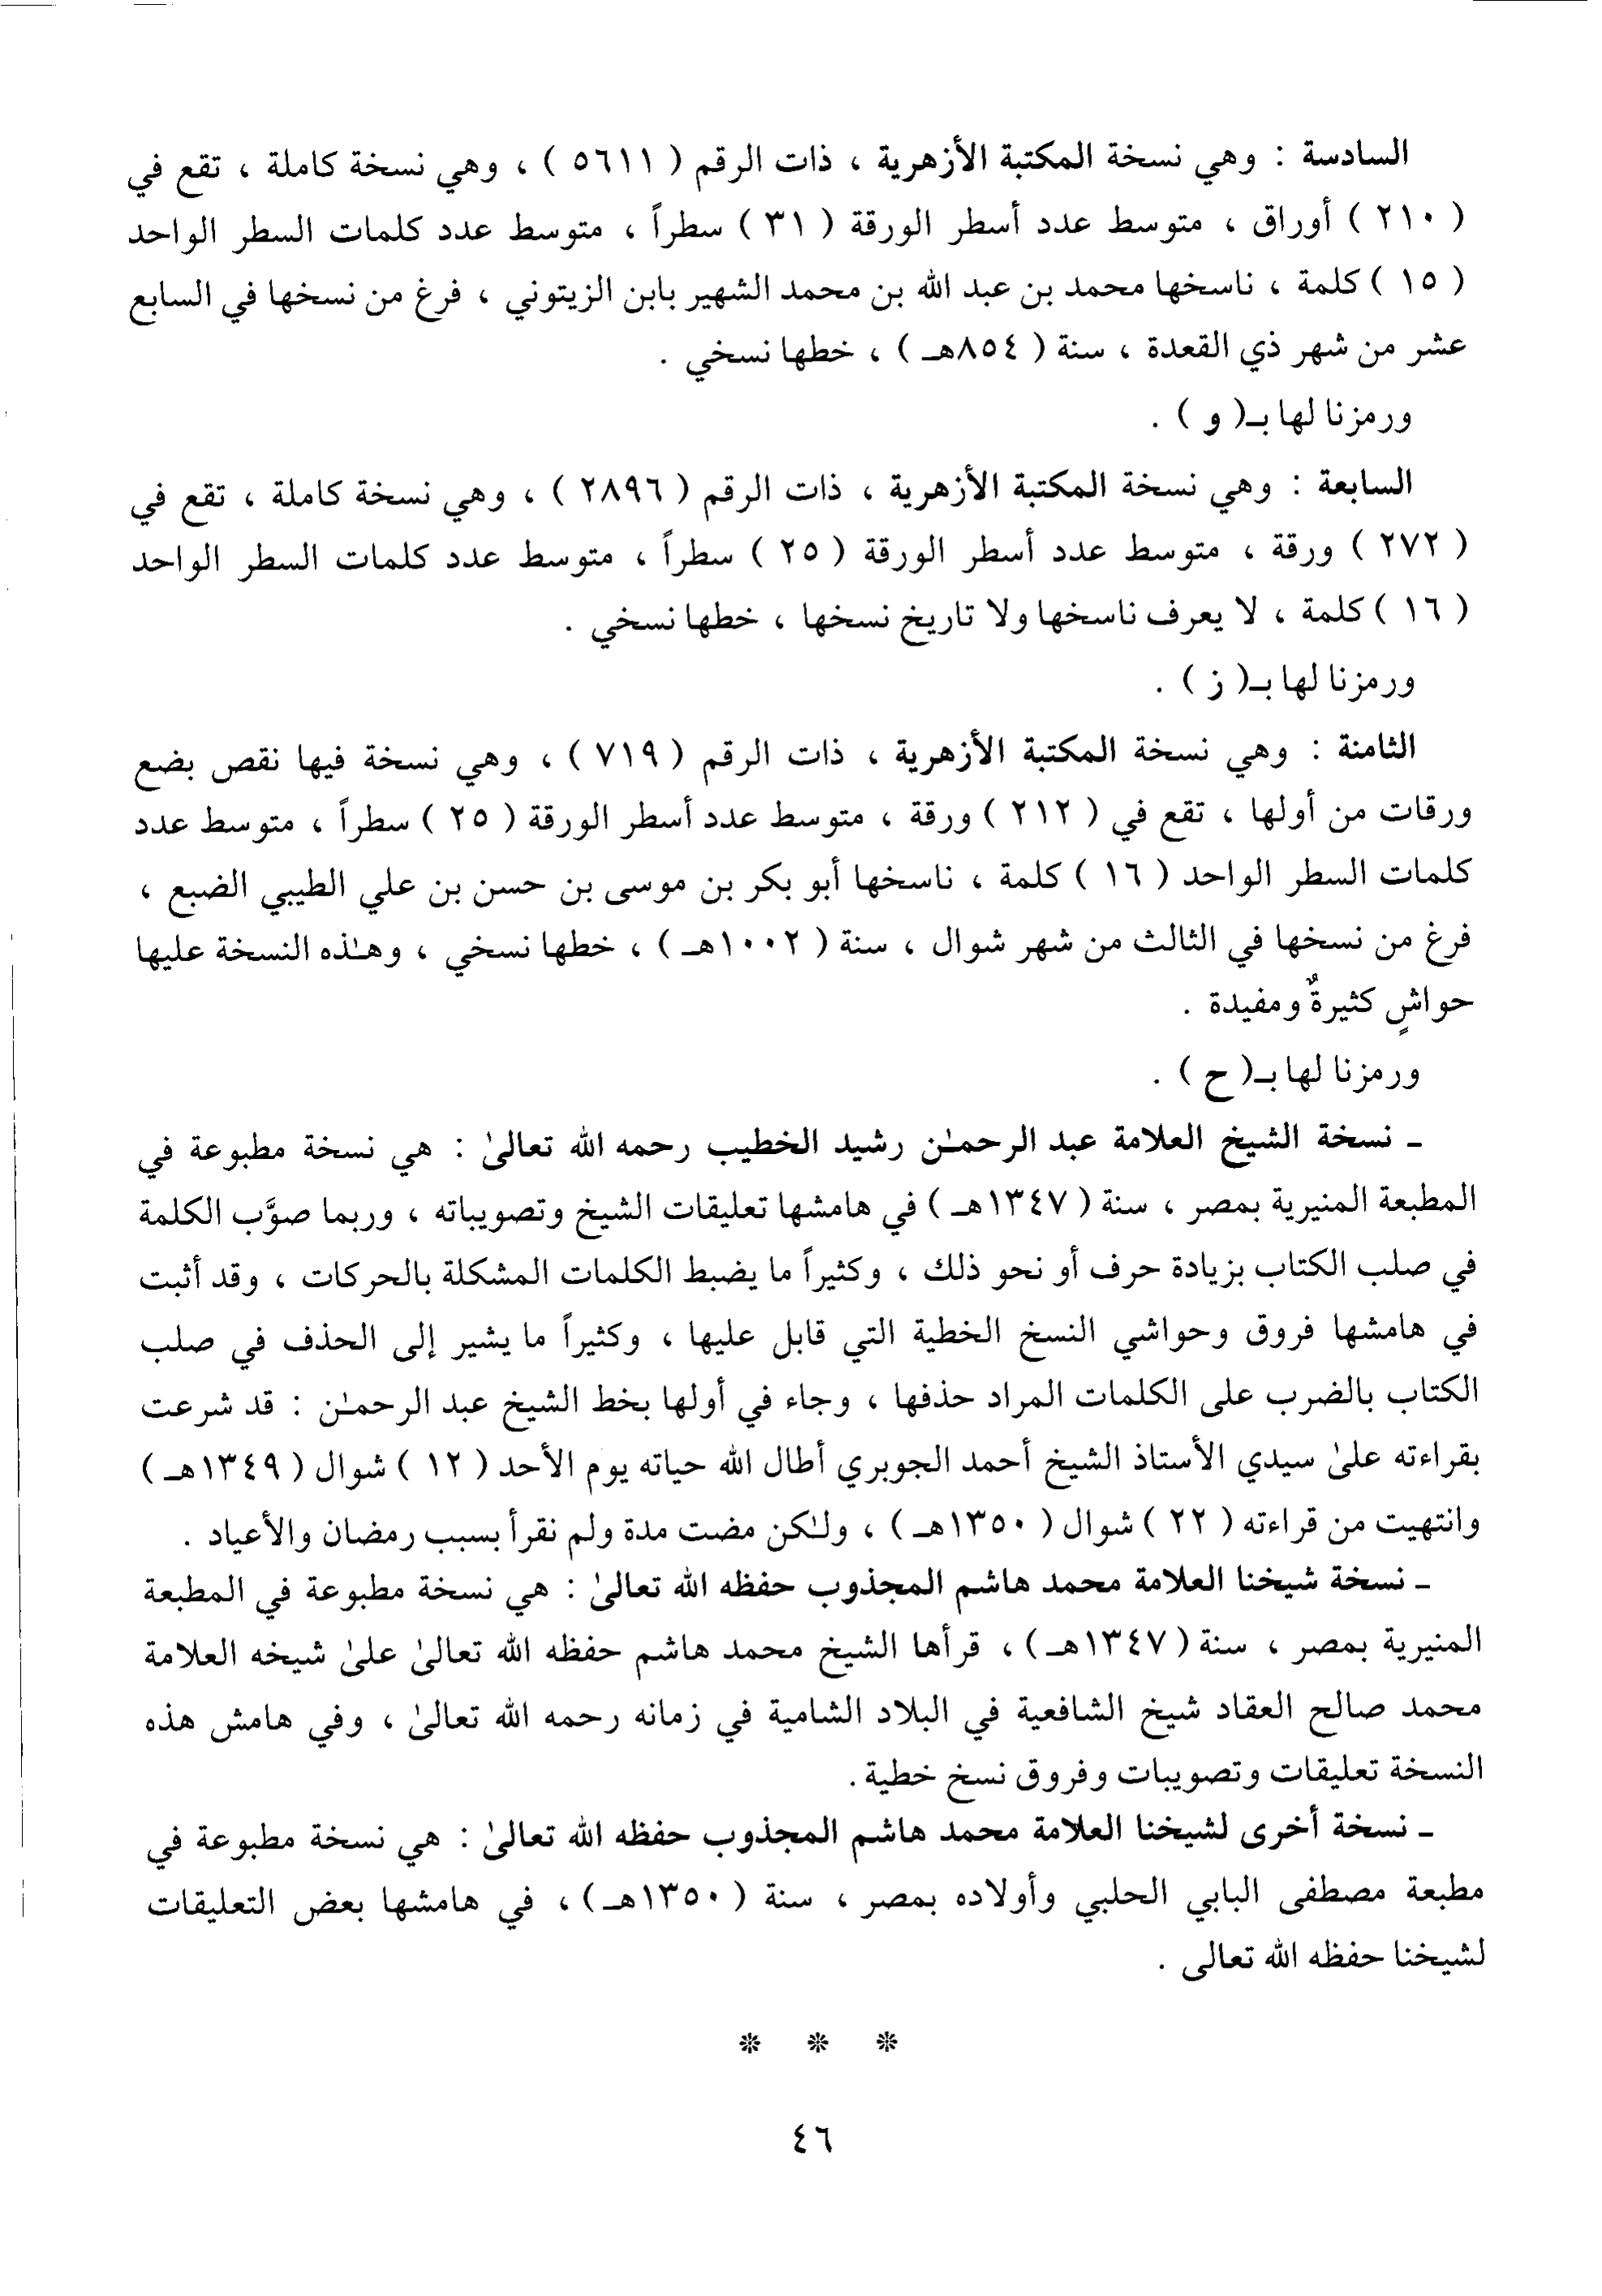 السادسة : وهي نسخة المكتبة الأزهرية ، ذات الرقم ( ٥٦١١ ) ، وهي نسخة كاملة ، تقع في
( ٢١٠ ) أوراق ، متوسط عدد أسطر الورقة ( ٣١ ) سطراً ، متوسط عدد كلمات السطر الواحد
( ١٥ ) كلمة ، ناسخها محمد بن عبد الله بن محمد الشهير بابن الزيتوني ، فرغ من نسخها في السابع
عشر من شهر ذي القعدة ، سنة ( ٨٥٤هـ ) ، خطها نسخي .
ورمزنا لها بـ( و ) .
السابعة : وهي نسخة المكتبة الأزهرية ، ذات الرقم ( ٢٨٩٦ ) ، وهي نسخة كاملة ، تقع في
( ٢٧٢ ) ورقة ، متوسط عدد أسطر الورقة ( ٢٥ ) سطراً ، متوسط عدد كلمات السطر الواحد
( ١٦ ) كلمة ، لا يعرف ناسخها ولا تاريخ نسخها ، خطها نسخي .
ورمزنا لها بـ( ز ) .
الثامنة : وهي نسخة المكتبة الأزهرية ، ذات الرقم ( ٧١٩ ) ، وهي نسخة فيها نقص بضع
ورقات من أولها ، تقع في ( ٢١٢ ) ورقة ، متوسط عدد أسطر الورقة ( ٢٥ ) سطراً ، متوسط عدد
كلمات السطر الواحد ( ١٦ ) كلمة ، ناسخها أبو بكر بن موسى بن حسن بن علي الطيبي الضبع ،
فرغ من نسخها في الثالث من شهر شوال ، سنة ( ١٠٠٢هـ ) ، خطها نسخي ، وهـٰذه النسخة عليها
حواشٍ كثيرةٌ ومفيدة .
ورمزنا لها بـ( ح ) .
ـ نسخة الشيخ العلامة عبد الرحمـٰن رشيد الخطيب رحمه الله تعالىٰ : هي نسخة مطبوعة في
المطبعة المنيرية بمصر ، سنة ( ١٣٤٧هـ ) في هامشها تعليقات الشيخ وتصويباته ، وربما صوَّب الكلمة
في صلب الكتاب بزيادة حرف أو نحو ذلك ، وكثيراً ما يضبط الكلمات المشكلة بالحركات ، وقد أثبت
في هامشها فروق وحواشي النسخ الخطية التي قابل عليها ، وكثيراً ما يشير إلى الحذف في صلب
الكتاب بالضرب على الكلمات المراد حذفها ، وجاء في أولها بخط الشيخ عبد الرحمـٰن : قد شرعت
بقراءته علىٰ سيدي الأستاذ الشيخ أحمد الجوبري أطال الله حياته يوم الأحد ( ١٢ ) شوال ( ١٣٤٩هـ )
وانتهيت من قراءته ( ٢٢ ) شوال ( ١٣٥٠هـ ) ، ولـٰكن مضت مدة ولم نقرأ بسبب رمضان والأعياد .
ـ نسخة شيخنا العلامة محمد هاشم المجذوب حفظه الله تعالىٰ : هي نسخة مطبوعة في المطبعة
المنيرية بمصر ، سنة ( ١٣٤٧هـ ) ، قرأها الشيخ محمد هاشم حفظه الله تعالىٰ علىٰ شيخه العلامة
محمد صالح العقاد شيخ الشافعية في البلاد الشامية في زمانه رحمه الله تعالىٰ ، وفي هامش هذه
النسخة تعليقات وتصويبات وفروق نسخ خطية .
ـ نسخة أخرى لشيخنا العلامة محمد هاشم المجذوب حفظه الله تعالىٰ : هي نسخة مطبوعة في
مطبعة مصطفى البابي الحلبي وأولاده بمصر ، سنة ( ١٣٥٠هـ ) ، في هامشها بعض التعليقات
لشيخنا حفظه الله تعالى .
* * *
٤٦